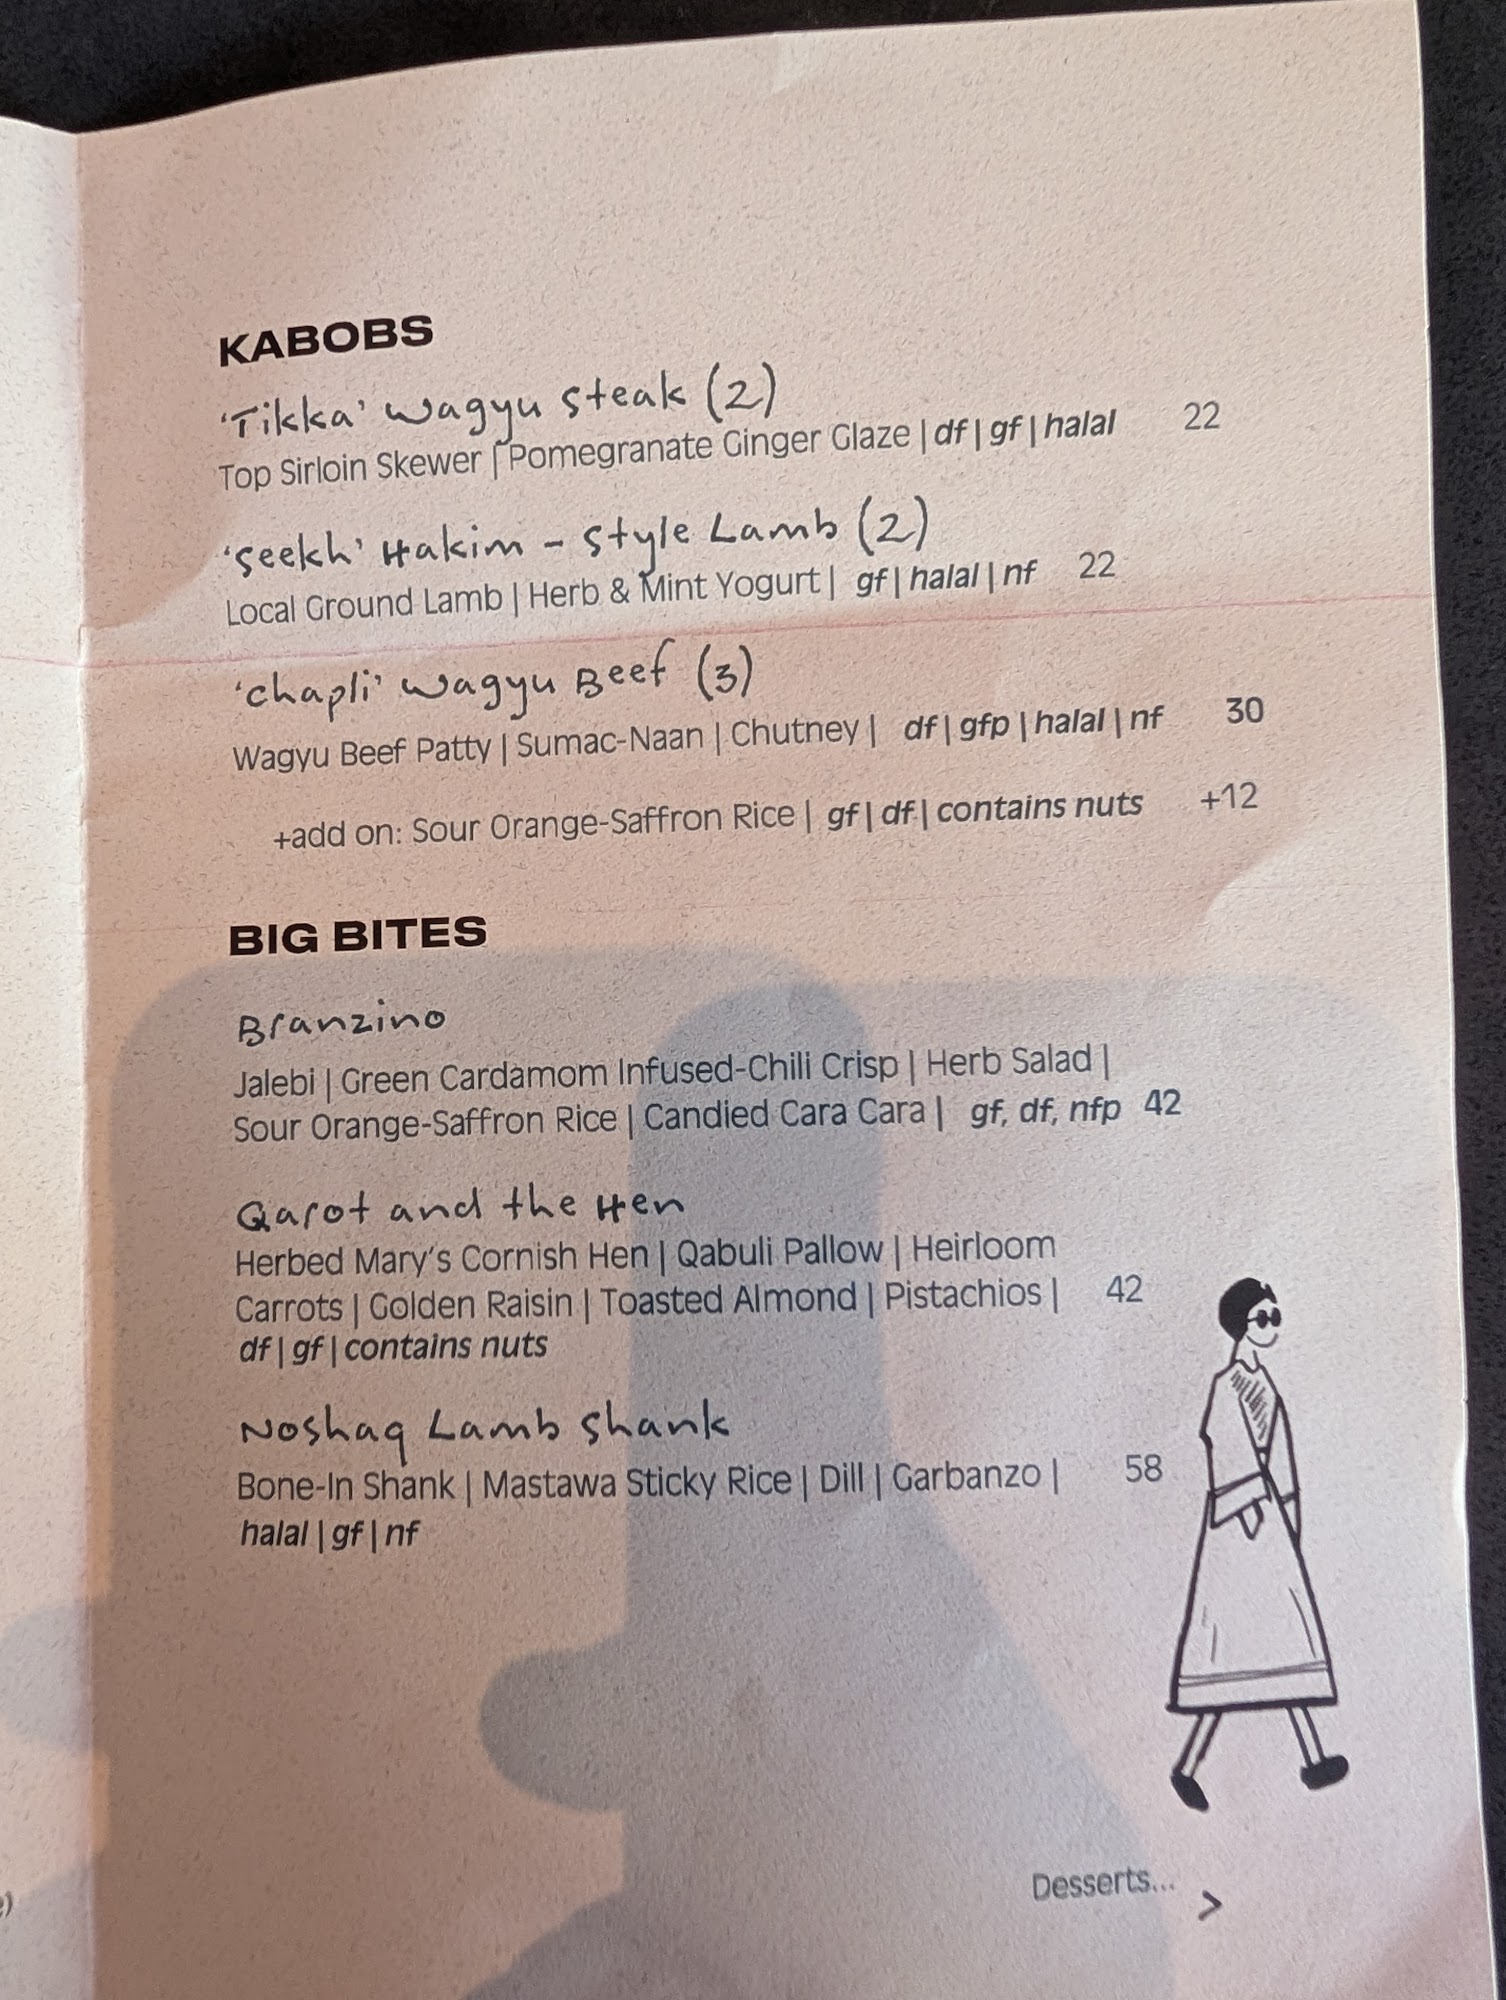 KABOBS
'Tikka' Wagyu Steak (2)
Top Sirloin Skewer | Pomegranate Ginger Glaze | df | gf | halal 22
'Seekh' Hakim - Style Lamb (2)
Local Ground Lamb | Herb & Mint Yogurt | gf | halal | nf 22
'Chapli' Wagyu Beef (3)
Wagyu Beef Patty | Sumac-Naan | Chutney | df | gfp | halal | nf 30
+add on: Sour Orange-Saffron Rice | gf | df | contains nuts +12
BIG BITES
Branzino
Jalebi | Green Cardamom Infused-Chili Crisp | Herb Salad |
Sour Orange-Saffron Rice | Candied Cara Cara | gf, df, nfp 42
Qarot and the Hen
Herbed Mary's Cornish Hen | Qabuli Pallow | Heirloom
Carrots | Golden Raisin | Toasted Almond | Pistachios | 42
df | gf | contains nuts
Noshaq Lamb Shank
Bone-In Shank | Mastawa Sticky Rice | Dill | Garbanzo | 58
halal | gf | nf
Desserts...
>